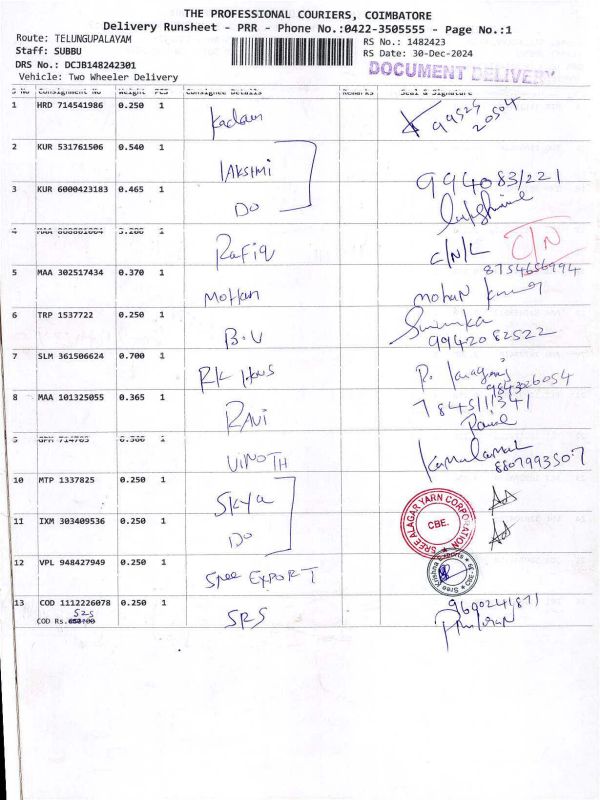 THE PROFESSIONAL COURIERS, COIMBATORE
Delivery Runsheet - PRR - Phone No.:0422-3505555 - Page No.:1
Route: TELUNGUPALAYAM
RS No.: 1482423
Staff: SUBBU
RS Date: 30-Dec-2024
DRS No.: DCJB148242301
DOCUMENT DELIVERY
Vehicle: Two Wheeler Delivery
S No Consignment No Weight PCS Consignee Details Remarks Seal & Signature
1 HRD 714541986 0.250 1 99525
20504
2 KUR 531761506 0.540 1 LAKSHMI 9940831221
3 KUR 6000423183 0.465 1 DO
4 1 Rafiq C/N/L C/N
8754656994
5 MAA 302517434 0.370 1 Mohan mohan kumar
6 TRP 1537722 0.250 1 B.V
9942082522
7 SLM 361506624 0.700 1 RK Hous
9843026054
8 MAA 101325055 0.365 1 RAVI 7845111341
9 1 VINOTH
8807993507
10 MTP 1337825 0.250 1 SKYA
SREE ALAGAR YARN CORPORATION
CBE.
11 IXM 303409536 0.250 1 DO
12 VPL 948427949 0.250 1 SREE EXPORT
13 COD 1112226078 0.250 1 SRS 9690241871
525
COD Rs.